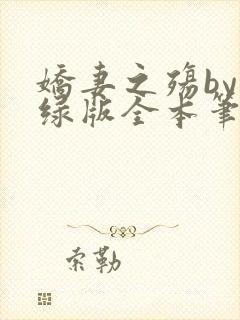 娇妻之殇by
绿版全本笔
索勒